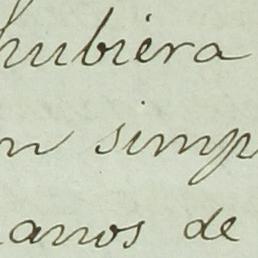 hubiera
n simp
anos de